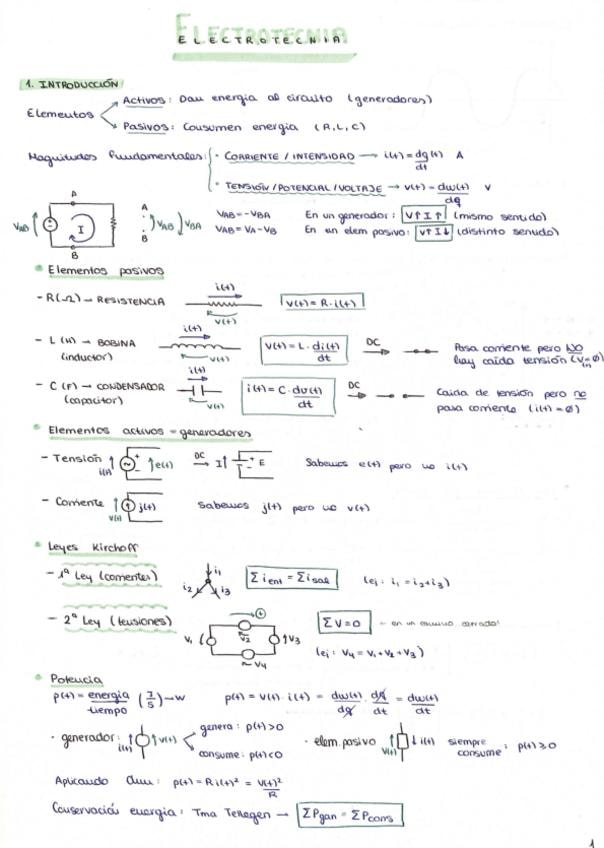 ELECTROTECNIA
1. INTRODUCCIÓN
Elementos
Activos: Dan energía al circuito (generadores)
Pasivos: Consumen energía (R, L, C)
Magnitudes fundamentales:
· CORRIENTE / INTENSIDAD → i(t) = dq(t)/dt A
· TENSIÓN / POTENCIAL / VOLTAJE → v(t) = dw(t)/dq V
A
VAB
I
B
A
B
VAB
VBA
VAB = -VBA
VAB = VA - VB
En un generador: V↑ I↑ (mismo sentido)
En un elem pasivo: V↑ I↓ (distinto sentido)
* Elementos pasivos
- R(Ω) → RESISTENCIA
i(t)
v(t)
v(t) = R · i(t)
- L (H) → BOBINA
(inductor)
i(t)
v(t)
v(t) = L · di(t)/dt
DC
Pasa corriente pero NO
hay caída tensión
- C (F) → CONDENSADOR
(capacitor)
i(t)
v(t)
i(t) = C · dv(t)/dt
DC
Caída de tensión pero no
pasa corriente (i(t) = ø)
* Elementos activos = generadores
- Tensión
i(t)
+
-
e(t)
DC
I
+
-
E
Sabemos e(t) pero no i(t)
- Corriente
v(t)
j(t)
Sabemos j(t) pero no v(t)
* Leyes Kirchoff
- 1ª Ley (corrientes)
i1
i2
i3
Σ ient = Σ isal
(ej: i1 = i2 + i3)
- 2ª Ley (tensiones)
+
V1
V2
V3
V4
Σ V = 0
(ej: V4 = V1 + V2 + V3)
* Potencia
p(t) = energía/tiempo (J/s) → W
p(t) = v(t) · i(t) = dw(t)/dq · dq/dt = dw(t)/dt
· generador:
i(t)
v(t)
genera: p(t) > 0
consume: p(t) < 0
· elem. pasivo
v(t)
i(t)
siempre
consume: p(t) ≥ 0
Aplicando Ohm: p(t) = R i(t)² = v(t)²/R
Conservación energía: Tma Tellegen → ΣPgan = ΣPcons
1